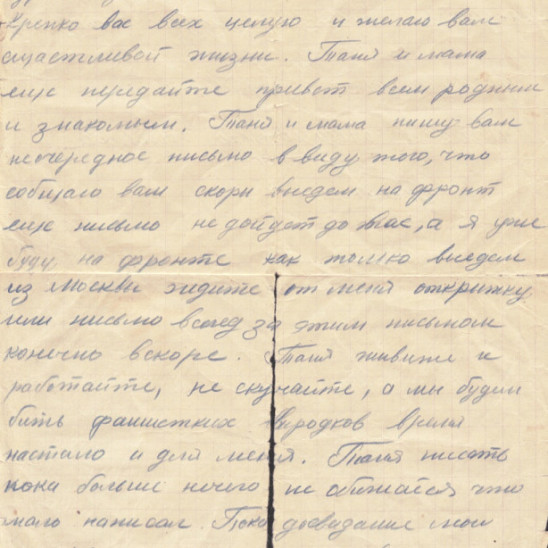 Крепко вас всех целую и желаю вам
счастливой жизни. Таня и мама
еще передайте привет всем родним
и знакомым. Таня и мама пишу вам
неочередное письмо в виду того, что
собщаю вам скоро выедем на фронт
еще письмо не дойдет до вас, а я уже
буду на фронте как только выедем
из Москвы ждите от меня открытку
или письмо вслед за этим письмом
конечно вскоре. Таня живите и
работайте, не скучайте, а мы будем
бить фашистких выродков время
настало и для меня. Таня писать
пока больше нечего не обижайся что
мало написал. Пока досвидание мои